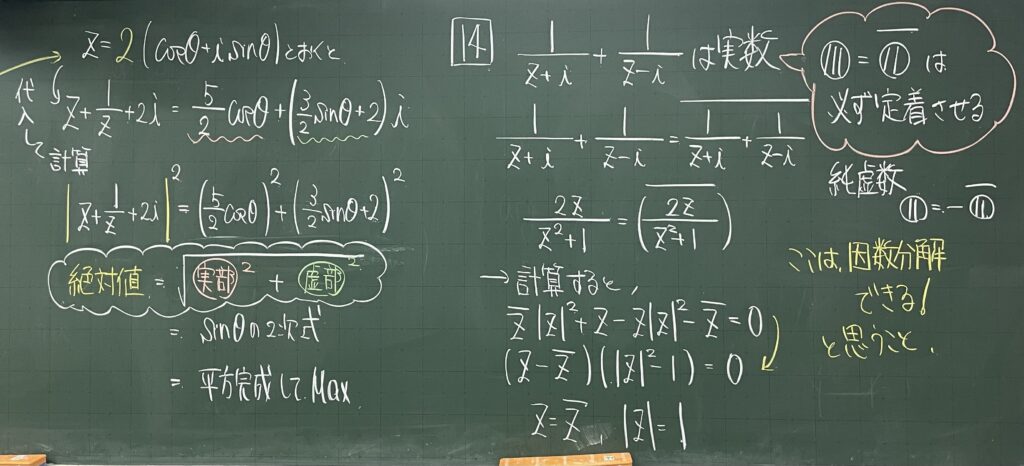 z = 2(cosθ+i sinθ)とおくと
代入して計算
z+1/z+2i = 5/2 cosθ+(3/2 sinθ+2)i
|z+1/z+2i|² = (5/2 cosθ)²+(3/2 sinθ+2)²
絶対値 = √(実部² + 虚部²)
= sinθの2次式
= 平方完成して Max
14 1/(z+i) + 1/(z-i) は実数
1/(z+i) + 1/(z-i) = \overline{1/(z+i) + 1/(z-i)}
2z/(z²+1) = \overline{(2z/(z²+1))}
→計算すると、
z̄|z|²+z-z|z|²-z̄=0
(z-z̄)(|z|²-1)=0
z=z̄, |z|=1
=
は
必ず定着させる
純虚数
=-
ここは、因数分解
できる!
と思うこと、